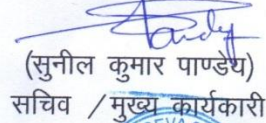 (सुनील कुमार पाण्डेय)
सचिव / मुख्य कार्यकारी